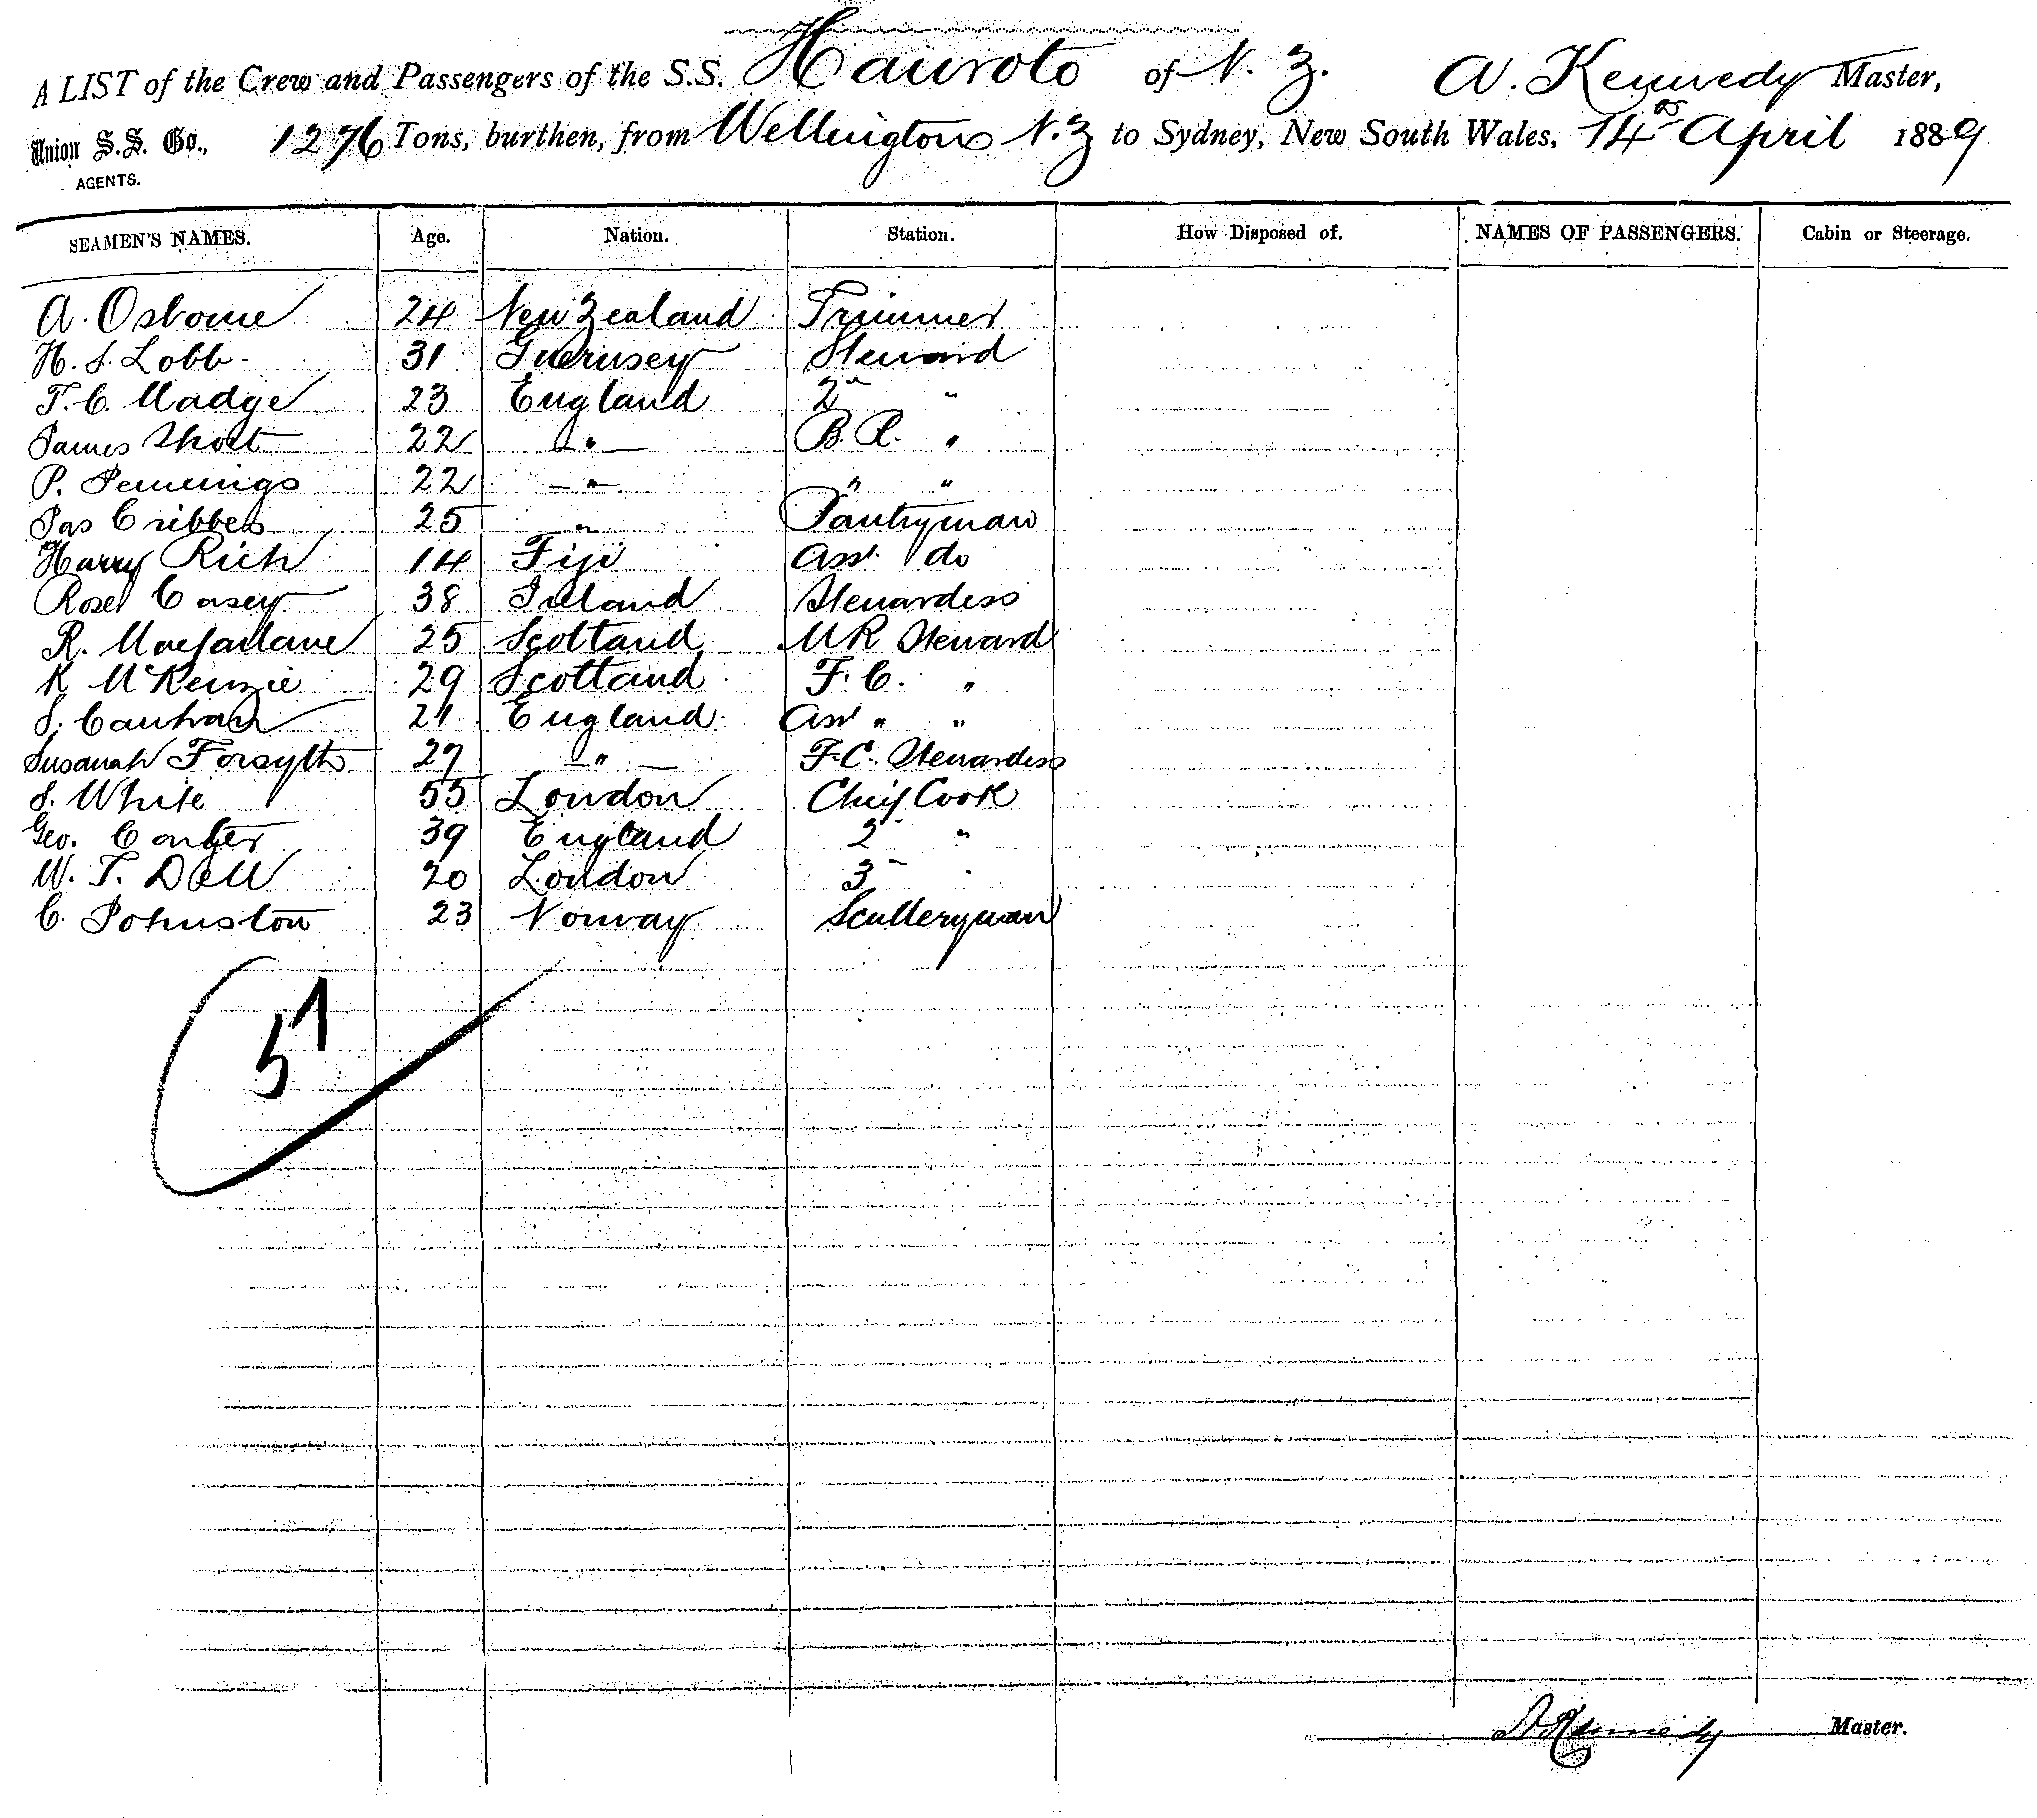 A LIST of the Crew and Passengers of the S.S. Hauroto of N. Z. A. Kennedy Master,
Union S.S. Co., 1276 Tons, burthen, from Wellington N.Z to Sydney, New South Wales, 14th April 1889
AGENTS.
SEAMEN'S NAMES. Age. Nation. Station. How Disposed of. NAMES OF PASSENGERS. Cabin or Steerage.
A. Osborne 24 New Zealand Trimmer
H. S. Lobb 31 Guernsey Steward
T. C. Madge 23 England 2nd "
James Short 22 " B. R. "
P. Jennings 22 " " "
Jas Cribbes 25 " Pantryman
Harry Rich 14 Fiji Asst do
Rose Casey 38 Ireland Stewardess
R. Macfarlane 25 Scotland M R Steward
K McKenzie 29 Scotland F. C. "
S. 21 England Asst " "
Susanah Forsyth 27 " F.C. Stewardess
S. White 55 London Chief Cook
Geo. Carter 39 England 2 "
W. T. Dall 20 London 3 "
C. Johnston 23 Norway Sculleryman
51
A Kennedy Master.